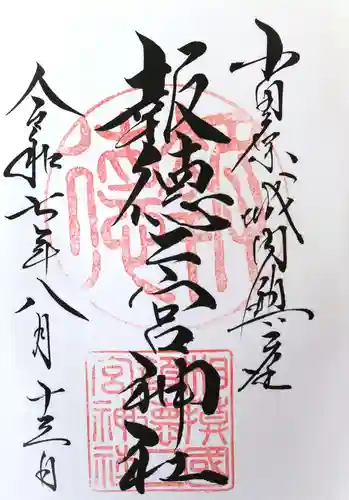 小田原城内鎮座
報徳二宮神社
令和七年八月十三日
報徳
相模國
報徳二
宮神社